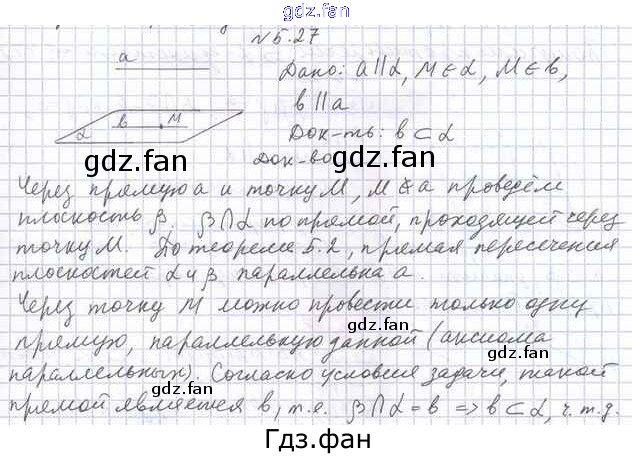 gdz.fan
№5.27
a
Дано: a||α, M∈α, M∈в,
в||a
α в M
Док-ть: в⊂α
Док-во
gdz.fan gdz.fan
Через прямую a и точку M, M∉a проведём
плоскость β, β∩α по прямой, проходящей через
точку M. По теореме 5.2, прямая пересечения
плоскостей α и β параллельна a.
Через точку M можно провести только одну
прямую, параллельную данной (аксиома
gdz.fan
параллельных). Согласно условия задачи, такой
gdz.fan
прямой является в, т.е. β∩α=в => в⊂α, ч.т.д.
Гдз.фан